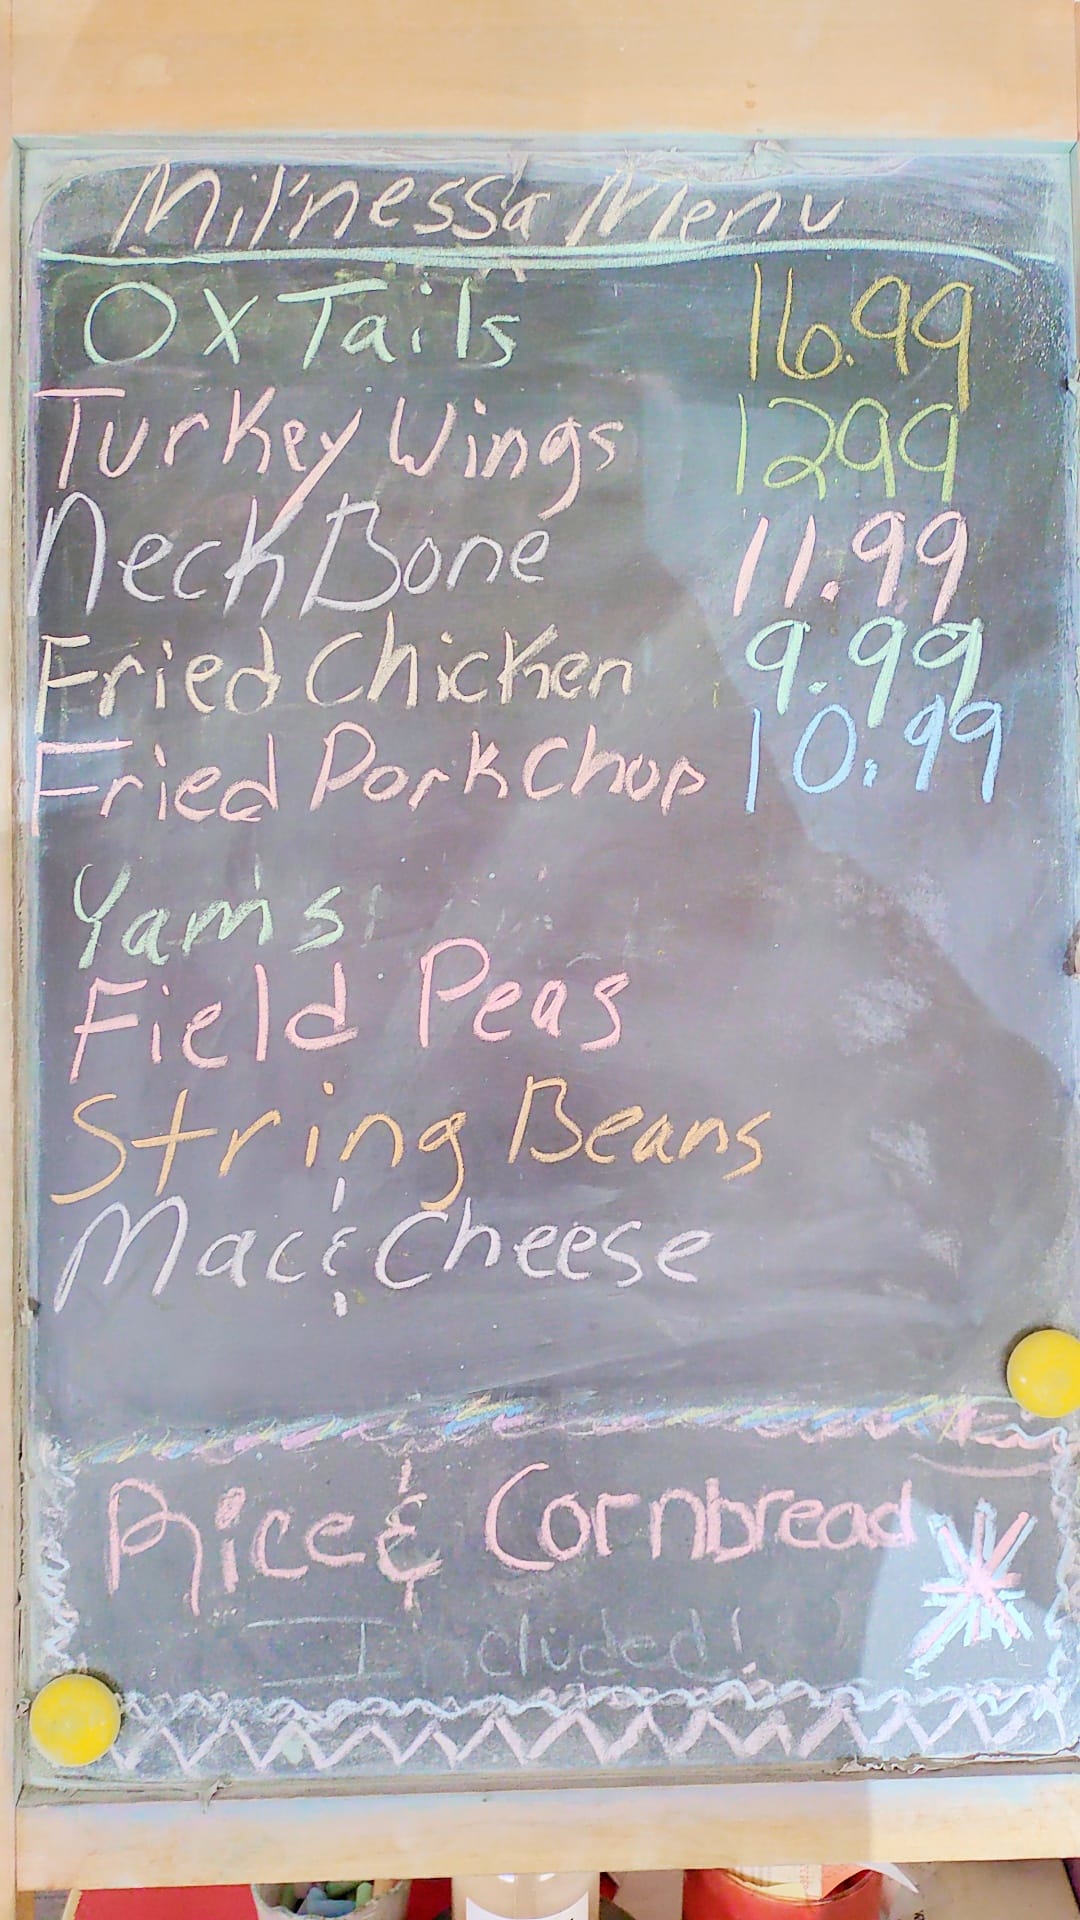 Mil'nessa Menu
Ox Tails 16.99
Turkey Wings 1299
Neck Bone 11.99
Fried Chicken 9.99
Fried Pork Chop 10.99
Yams
Field Peas
String Beans
Mac & Cheese
Rice & Cornbread
Included!